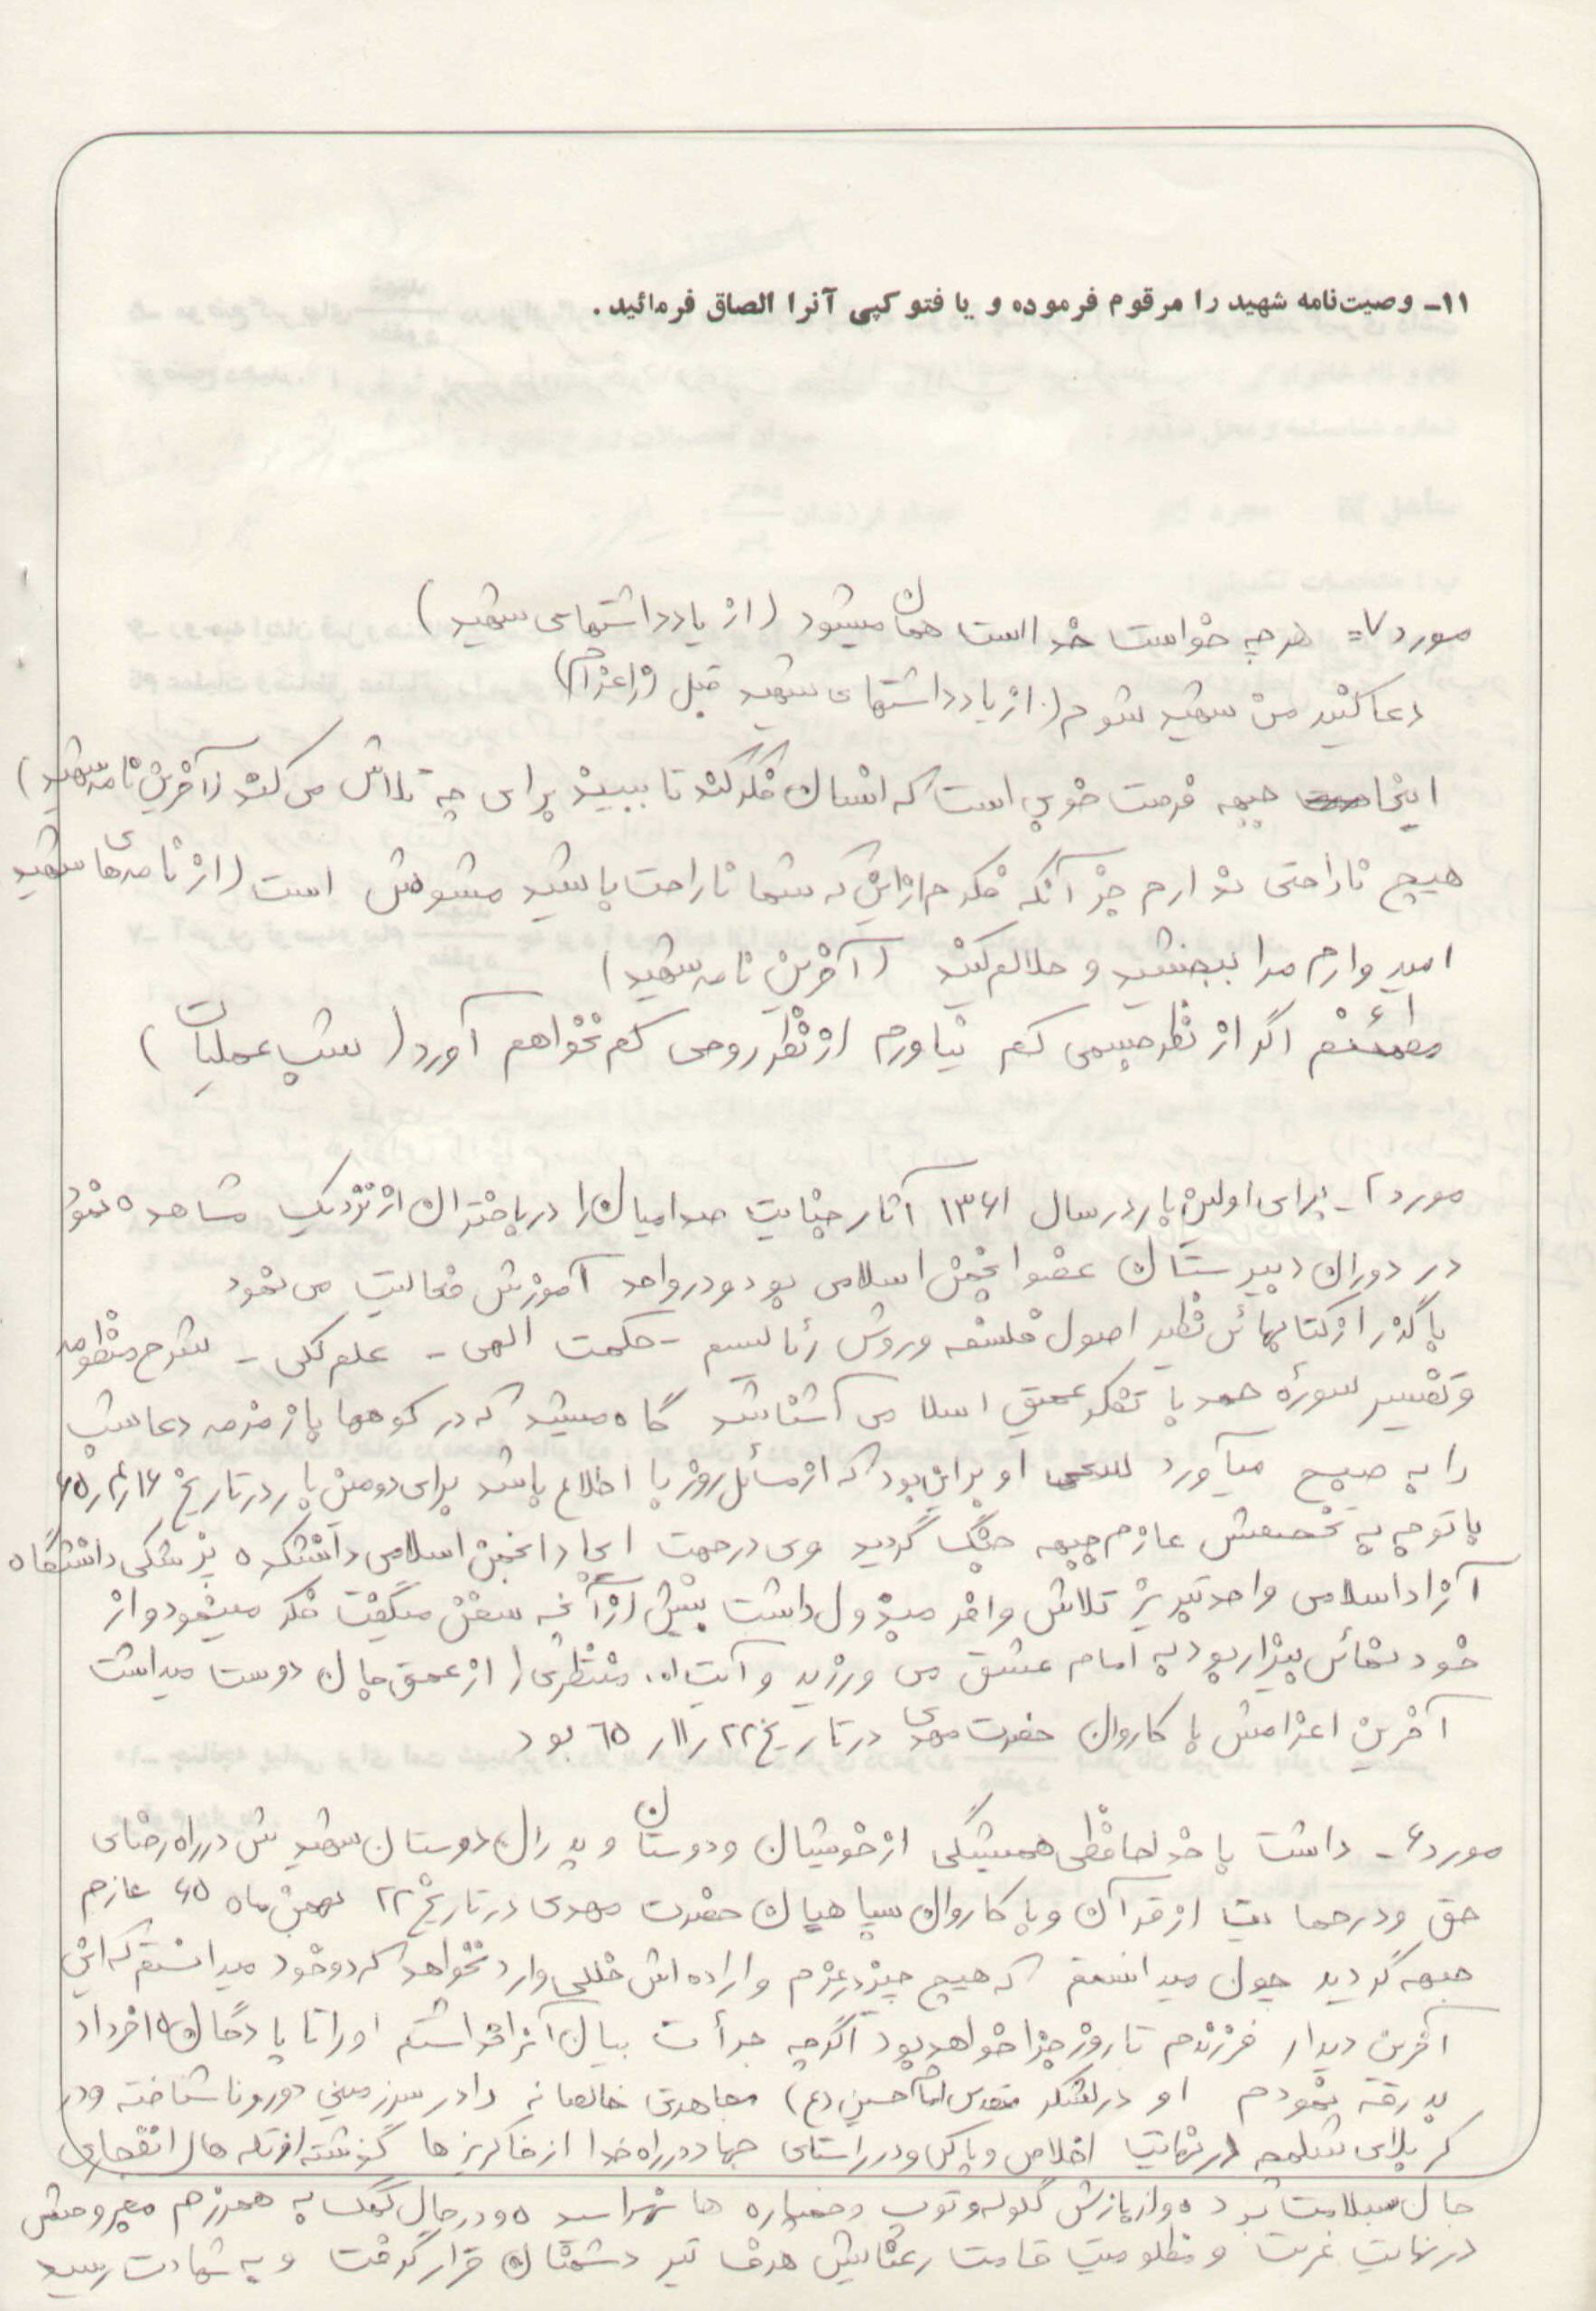 ۱۱ـ وصیت‌نامه شهید را مرقوم فرموده و یا فتوکپی آنرا الصاق فرمائید.
مورد ۷= هرچه خواست خداست همان میشود (از یادداشتهای شهید)
دعا کنید من شهید شوم (از یادداشتهای شهید قبل از اعزام)
اینجا جبهه فرصت خوبی است که انسان فکر کند تا ببیند برای چه تلاش می کند (آخرین نامه شهید)
هیچ ناراحتی ندارم جز آنکه فکرم از این که شما ناراحت باشید مشوش است (از نامه های شهید
امیدوارم مرا ببخشید و حلالم کنید (آخرین نامه شهید)
مطمئنم اگر از نظر جسمی کم بیاورم از نظر روحی کم نخواهم آورد (شب عملیات)
مورد ۲ـ برای اولین بار در سال ۱۳۶۱ آثار جنایت صدامیان را در باختران از نزدیک مشاهده نمود
در دوران دبیرستان عضو انجمن اسلامی بود و در واحد آموزش فعالیت می نمود
با گذر از کتابهائی نظیر اصول فلسفه و روش رئالیسم - حکمت الهی - علم کلی - شرح منظومه
و تفسیر سورۀ حمد با تفکر عمیق اسلامی آشنا شد گاه میشد که در کوهها با زمزمه دعا شب
را به صبح میآورد سعی او بر این بود که از مسائل روز با اطلاع باشد برای دومین بار در تاریخ ۶۵٫۴٫۱۶
با توجه به تخصصش عازم جبهه جنگ گردید وی در جهت ایجاد انجمن اسلامی دانشکده پزشکی دانشگاه
آزاد اسلامی واحد تبریز تلاش وافر مبذول داشت بیش از آنچه سخن میگفت فکر مینمود و از
خود نمائی بیزار بود به امام عشق می ورزید و آیت اله منتظری را از عمق جان دوست میداشت
آخرین اعزامش با کاروان حضرت مهدی در تاریخ ۲۲ر۱۱ر۶۵ بود
مورد ۶ـ داشت با خداحافظی همیشگی از خویشان و دوستان و پدران دوستان شهیدش در راه رضای
حق و در حمایت از قرآن و با کاروان سپاهیان حضرت مهدی در تاریخ ۲۲ بهمن ماه ۶۵ عازم
جبهه گردید چون میدانستم که هیچ چیز در عزم و اراده اش خللی وارد نخواهد کرد و خود میدانستم که این
آخرین دیدار فرزندم تا روز جزا خواهد بود اگرچه جرأت بیان آنرا نداشتم او را تا پادگان افراد
بدرقه نمودم او در لشکر مقدس امام حسین (ع) مجاهدتی خالصانه را در سرزمینی دور و ناشناخته و در
کربلای شلمچه در نهایت اخلاص و پاکی و در راستای جهاد در راه خدا از خاکریزها گذشته از تله های انفجاری
جان سلامت برد و از بارش گلوله و توپ و خمپاره ها نهراسیده و در حال کمک به همرزم مجروحش
در نهایت غربت و مظلومیت قامت رعنایش هدف تیر دشمنان قرار گرفت و به شهادت رسید